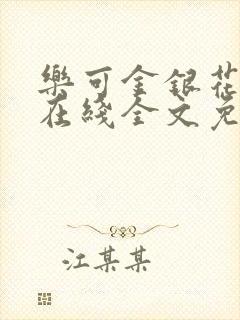 樂可金銀花
在綫全文免
江某某